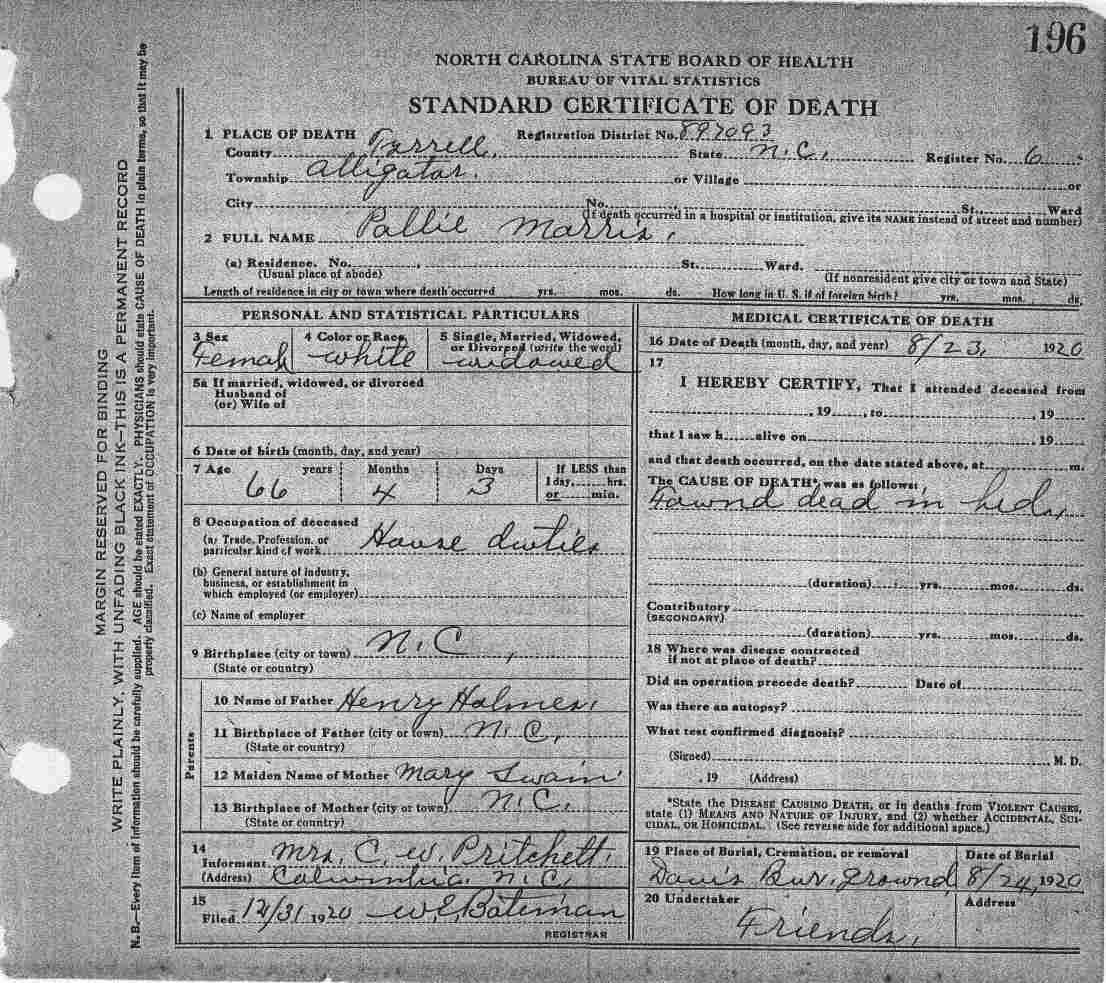 196
NORTH CAROLINA STATE BOARD OF HEALTH
BUREAU OF VITAL STATISTICS
STANDARD CERTIFICATE OF DEATH
1 PLACE OF DEATH Registration District No. 897093
County Tyrrell, State N.C. Register No. 6
Township Alligator. or Village or
City No. St. Ward
(If death occurred in a hospital or institution, give its NAME instead of street and number)
2 FULL NAME Pallie Morris,
(a) Residence. No. St. Ward.
(Usual place of abode) (If nonresident give city or town and State)
Length of residence in city or town where death occurred yrs. mos. ds. How long in U. S. if of foreign birth? yrs. mos. ds.
PERSONAL AND STATISTICAL PARTICULARS
3 Sex 4 Color or Race 5 Single, Married, Widowed,
or Divorced (write the word)
Female white widowed
5a If married, widowed, or divorced
Husband of
(or) Wife of
6 Date of birth (month, day, and year)
7 Age years Months Days If LESS than
1 day, hrs.
66 4 3 or min.
8 Occupation of deceased
(a) Trade, Profession, or
particular kind of work House duties
(b) General nature of industry,
business, or establishment in
which employed (or employer)
(c) Name of employer
9 Birthplace (city or town) N.C,
(State or country)
Parents
10 Name of Father Henry Holmes,
11 Birthplace of Father (city or town) N.C,
(State or country)
12 Maiden Name of Mother Mary Swain
13 Birthplace of Mother (city or town) N.C.
(State or country)
14
Informant Mrs. C. W. Pritchett.
(Address) Columbia, N.C.
15
Filed 12/31 1920 W E Bateman
REGISTRAR
MEDICAL CERTIFICATE OF DEATH
16 Date of Death (month, day, and year) 8/23, 1920
17
I HEREBY CERTIFY, That I attended deceased from
, 19 , to , 19
that I saw h alive on , 19
and that death occurred, on the date stated above, at m.
The CAUSE OF DEATH* was as follows:
Found dead in bed,
(duration) yrs. mos. ds.
Contributory
(SECONDARY)
(duration) yrs. mos. ds.
18 Where was disease contracted
if not at place of death?
Did an operation precede death? Date of
Was there an autopsy?
What test confirmed diagnosis?
(Signed) M. D.
, 19 (Address)
*State the DISEASE CAUSING DEATH, or in deaths from VIOLENT CAUSES,
state (1) MEANS AND NATURE OF INJURY, and (2) whether ACCIDENTAL, SUI-
CIDAL, OR HOMICIDAL. (See reverse side for additional space.)
19 Place of Burial, Cremation, or removal Date of Burial
Davis Bur. ground 8/24, 1920
20 Undertaker Address
Friends,
MARGIN RESERVED FOR BINDING
WRITE PLAINLY, WITH UNFADING BLACK INK—THIS IS A PERMANENT RECORD
N. B.—Every item of information should be carefully supplied. AGE should be stated EXACTLY. PHYSICIANS should state CAUSE OF DEATH in plain terms, so that it may be
properly classified. Exact statement of OCCUPATION is very important.